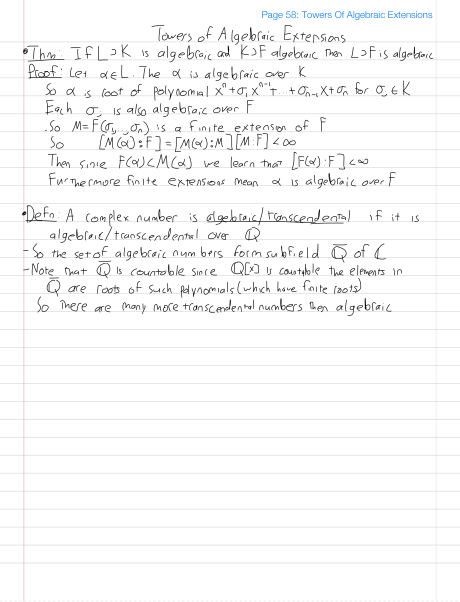 Page 58: Towers Of Algebraic Extensions
Towers of Algebraic Extensions
• Thm: If L⊃K is algebraic and K⊃F algebraic then L⊃F is algebraic
Proof: Let α∈L. The α is algebraic over K
So α is root of polynomial xⁿ+σ₁xⁿ⁻¹+...+σₙ₋₁x+σₙ for σᵢ∈K
Each σᵢ is also algebraic over F
So M=F(σ₁,...,σₙ) is a finite extension of F
So [M(α):F]=[M(α):M][M:F]<∞
Then since F(α)⊂M(α) we learn that [F(α):F]<∞
Furthermore finite extensions mean α is algebraic over F
• Defn: A complex number is algebraic/transcendental if it is
algebraic/transcendental over ℚ
- So the set of algebraic numbers form subfield ℚ̅ of ℂ
- Note that ℚ̅ is countable since ℚ[x] is countable the elements in
ℚ̅ are roots of such polynomials (which have finite roots)
So there are many more transcendental numbers then algebraic